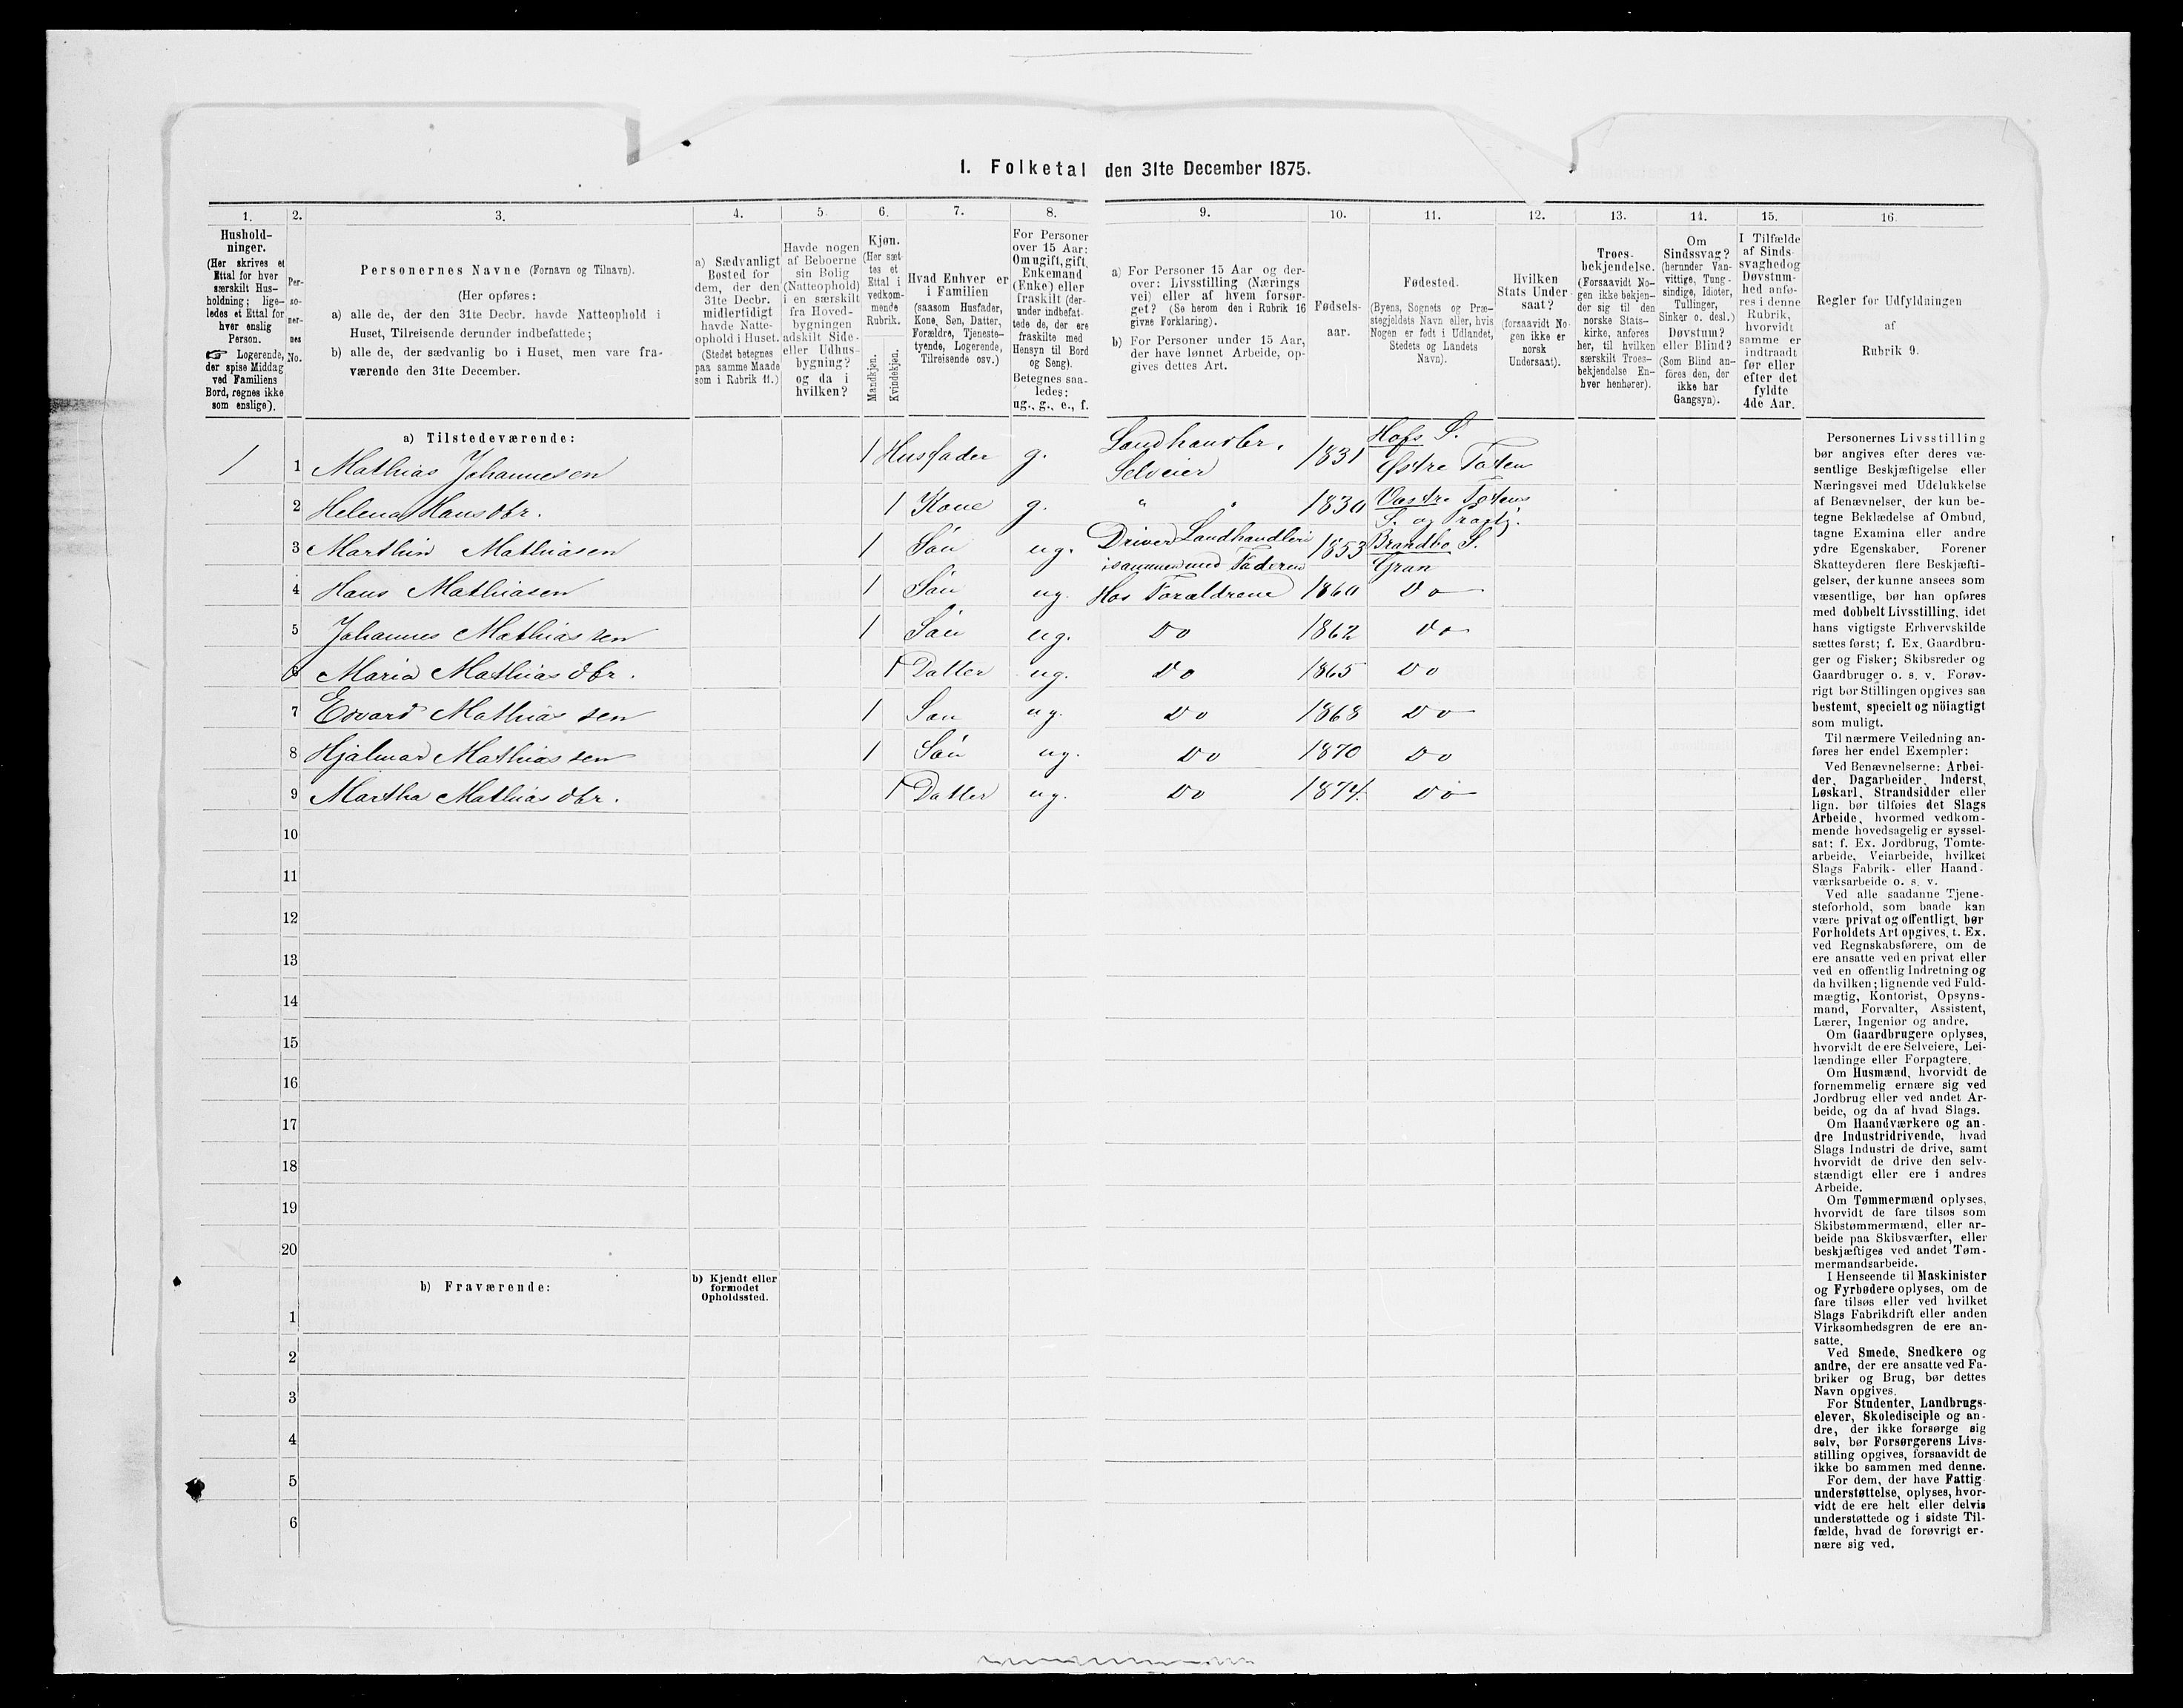 I. Folketal den 31te December 1875.
1. 2. 3. 4. 5. 6. 7. 8. 9. 10. 11. 12. 13. 14. 15. 16.
Hushold-
ninger.
(Her skrives et
Ettal for hver
særskilt Hus-
holdning; lige-
ledes et Ettal for
hver enslig
Person.
☞ Logerende,
der spise Middag
ved Familiens
Bord, regnes ikke
som enslige).
Per-
so-
ner-
nes
No.
Personernes Navne (Fornavn og Tilnavn).
(Her opføres:
a) alle de, der den 31te Decbr. havde Natteophold i
Huset, Tilreisende derunder indbefattede;
b) alle de, der sædvanlig bo i Huset, men vare fra-
værende den 31te December.
a) Sædvanligt
Bosted for
dem, der den
31te Decbr.
midlertidigt
havde Natte-
ophold i Huset.
(Stedet betegnes
paa samme Maade
som i Rubrik 11.)
Havde nogen
af Beboerne
sin Bolig
(Natteophold)
i en særskilt
fra Hoved-
bygningen
adskilt Side-
eller Udhus-
bygning?
og da i
hvilken?
Kjøn.
(Her sæt-
tes et
Ettal i
vedkom-
mende
Rubrik.
Mandkjøn.
Kvindekjøn.
Hvad Enhver er
i Familien
(saasom Husfader,
Kone, Søn, Datter,
Forældre, Tjeneste-
tyende, Logerende,
Tilreisende osv.)
For Personer
over 15 Aar:
Om ugift, gift,
Enkemand
(Enke) eller
fraskilt (der-
under indbefat-
tede de, der ere
fraskilte med
Hensyn til Bord
og Seng).
Betegnes saa-
ledes:
ug., g., e., f.
a) For Personer 15 Aar og der-
over: Livsstilling (Nærings
vei) eller af hvem forsør-
get? (Se herom den i Rubrik 16
givne Forklaring).
b) For Personer under 15 Aar,
der have lønnet Arbeide, op-
gives dettes Art.
Fødsels-
aar.
Fødested.
(Byens, Sognets og Præ-
stegjeldets Navn eller, hvis
Nogen er født i Udlandet,
Stedets og Landets
Navn).
Hvilken
Stats Under-
saat?
(forsaavidt No-
gen ikke er
norsk
Undersaat).
Troes-
bekjendelse.
(Forsaavidt No-
gen ikke bekjen-
der sig til den
norske Stats-
kirke, anføres
her, til hvilken
særskilt Troes-
bekjendelse En-
hver henhører).
Om
Sindssvag?
(herunder Van-
vittige, Tung-
sindige, Idioter,
Tullinger,
Sinker o. desl.)
Døvstum?
eller Blind?
(Som Blind an-
føres den, der
ikke har
Gangsyn).
I Tilfælde
af Sinds-
svaghed og
Døvstum-
hed anfø-
res i denne
Rubrik,
hvorvidt
samme er
indtraadt
før eller
efter det
fyldte
4de Aar.
Regler for Udfyldningen
af
Rubrik 9.
a) Tilstedeværende:
1 1 Mathias Johannesen 1 Husfader g. Landhandler. Selveier 1831 Hofs S. Østre Toten
2 Helena Hansdtr. 1 Kone g. " " 1830 Vestre Totens S. og Præstgj.
3 Marthin Mathiasen 1 Søn ug. Driver Landhandleri isammen med Faderen 1853 Brandbo S. Gran
4 Hans Mathiasen 1 Søn ug. Hos Forældrene 1860 Do
5 Johannes Mathiassen 1 Søn ug. Do 1862 Do
6 Maria Mathiasdtr. 1 Datter ug. Do 1865 Do
7 Edvard Mathiassen 1 Søn ug. Do 1868 Do
8 Hjalmar Mathiassen 1 Søn ug. Do 1870 Do
9 Martha Mathiasdtr. 1 Datter ug. Do 1874. Do
10
11
12
13
14
15
16
17
18
19
20
b) Fraværende:
b) Kjendt eller
formodet
Opholdssted.
1
2
3
4
5
6
Personernes Livsstilling
bør angives efter deres væ-
sentlige Beskjæftigelse eller
Næringsvei med Udelukkelse
af Benævnelser, der kun be-
tegne Beklædelse af Ombud,
tagne Examina eller andre
ydre Egenskaber. Forener
Skatteyderen flere Beskjæfti-
gelser, der kunne ansees som
væsentlige, bør han opføres
med dobbelt Livsstilling, idet
hans vigtigste Erhvervskilde
sættes først; f. Ex. Gaardbru-
ger og Fisker; Skibsreder og
Gaardbruger o. s. v. Forøv-
rigt bør Stillingen opgives saa
bestemt, specielt og nöiagtigt
som muligt.
Til nærmere Veiledning an-
føres her endel Exempler:
Ved Benævnelserne: Arbei-
der, Dagarbeider, Inderst,
Løskarl, Strandsidder eller
lign. bør tilføies det Slags
Arbeide, hvormed vedkom-
mende hovedsagelig er syssel-
sat; f. Ex. Jordbrug, Tomte-
arbeide, Veiarbeide, hvilket
Slags Fabrik- eller Haand-
værksarbeide o. s. v.
Ved alle saadanne Tjene-
steforhold, som baade kan
være privat og offentligt, bør
Forholdets Art opgives, t. Ex.
ved Regnskabsførere, om de
ere ansatte ved en privat eller
ved en offentlig Indretning og
da hvilken; lignende ved Fuld-
mægtig, Kontorist, Opsyns-
mand, Forvalter, Assistent,
Lærer, Ingeniør og andre.
Om Gaardbrugere oplyses,
hvorvidt de ere Selveiere, Lei-
lændinge eller Forpagtere.
Om Husmænd, hvorvidt de
fornemmelig ernære sig ved
Jordbrug eller ved andet Ar-
beide, og da af hvad Slags.
Om Haandværkere og an-
dre Industridrivende, hvad
Slags Industri de drive, samt
hvorvidt de drive den selv-
stændigt eller ere i andres
Arbeide.
Om Tømmermænd oplyses,
hvorvidt de fare tilsøs som
Skibstømmermænd, eller ar-
beide paa Skibsværfter, eller
beskjæftiges ved andet Tøm-
mermandsarbeide.
I Henseende til Maskinister
og Fyrbødere oplyses, om de
fare tilsøs eller ved hvilket
Slags Fabrikdrift eller anden
Virksomhedsgren de ere an-
satte.
Ved Smede, Snedkere og
andre, der ere ansatte ved Fa-
briker og Brug, bør dettes
Navn opgives.
For Studenter, Landbrugs-
elever, Skoledisciple og an-
dre, der ikke forsørge sig
selv, bør Forsørgerens Livs-
stilling opgives, forsaavidt de
ikke bo sammen med denne.
For dem, der have Fattig-
understøttelse, oplyses, hvor-
vidt de ere helt eller delvis
understøttede og i sidste Til-
fælde, hvad de forøvrigt er-
nære sig ved.